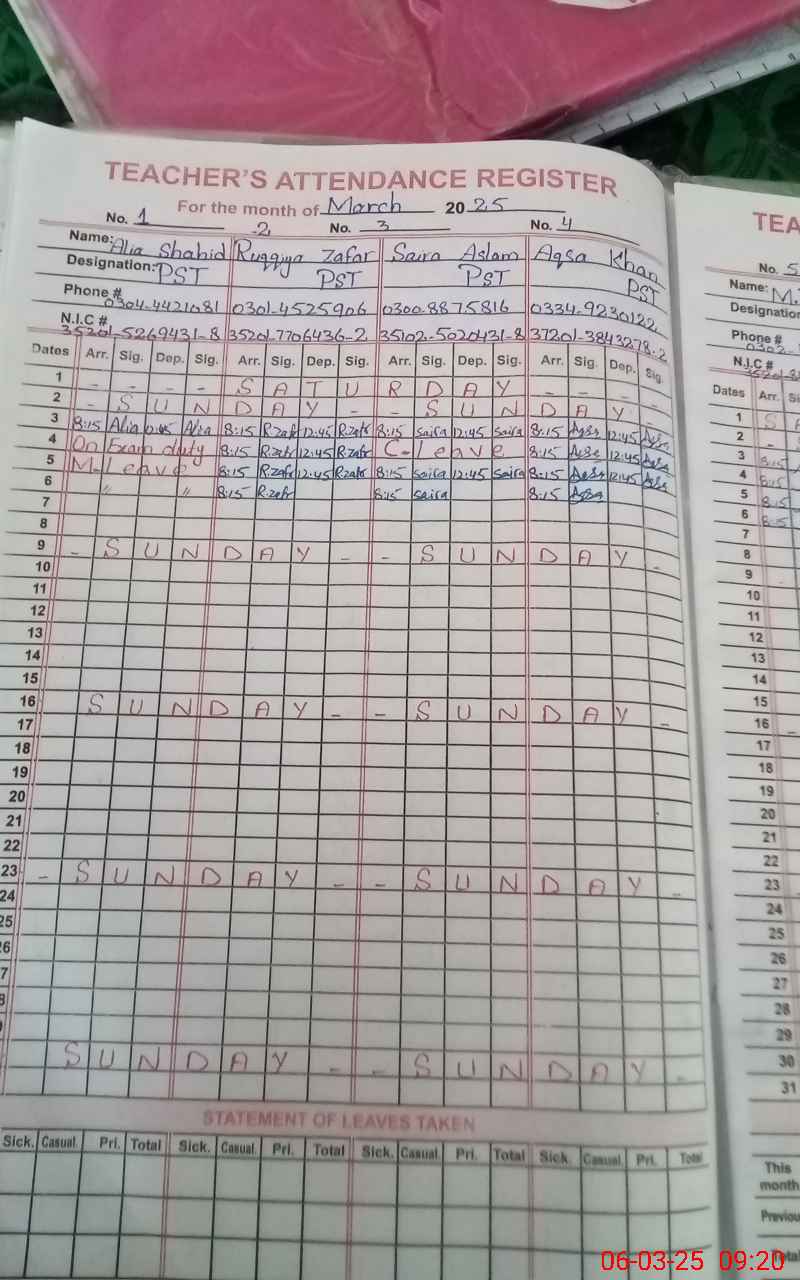 TEACHER'S ATTENDANCE REGISTER
For the month of March 2025
No. 1 2 No. 3 No. 4
Name: Alia Shahid Ruqqiya Zafar Saira Aslam Aqsa Khan
Designation: PST PST PST PST
Phone # 0304-4421081 0301-4525906 0300-8875816 0334-9230122
N.I.C # 35201-5269431-8 35201-7706436-2 35102-5020431-8 37201-3843278-2
Dates Arr. Sig. Dep. Sig. Arr. Sig. Dep. Sig. Arr. Sig. Dep. Sig. Arr. Sig. Dep. Sig.
1 - - - - S A T U R D A Y - - - -
2 - S U N D A Y - - S U N D A Y
3 8:15 Alia Alia 8:15 R.zafr 12:45 R.zafr 8:15 saira 12:45 saira 8:15 Aqsa 12:45 Aqsa
4 On Exam duty 8:15 R.zafr 12:45 R.zafr C-Leave 8:15 Aqsa 12:45 Aqsa
5 M-Leave 8:15 R.zafr 12:45 R.zafr 8:15 saira 12:45 saira 8:15 Aqsa 12:45 Aqsa
6 " " 8:15 R.zafr 8:15 saira 8:15 Aqsa
7
8
9 - S U N D A Y - - S U N D A Y -
10
11
12
13
14
15
16 S U N D A Y - - S U N D A Y -
17
18
19
20
21
22
23 - S U N D A Y - - S U N D A Y -
24
25
6
7
8
S U N D A Y - - S U N D A Y -
STATEMENT OF LEAVES TAKEN
Sick. Casual. Pri. Total Sick. Casual. Pri. Total Sick. Casual. Pri. Total Sick. Casual. Pri. Total
TEA
No. 5
Name: M.
Designation
Phone # 0302-
N.I.C #
Dates Arr. Si
1 S A
2 -
3 8:15
4 8:15
5 8:15
6 8:15
7
8
9
10
11
12
13
14
15
16 -
17
18
19
20
21
22
23 -
24
25
26
27
28
29
30
31
This
month
Previou
Total
06-03-25 09:20